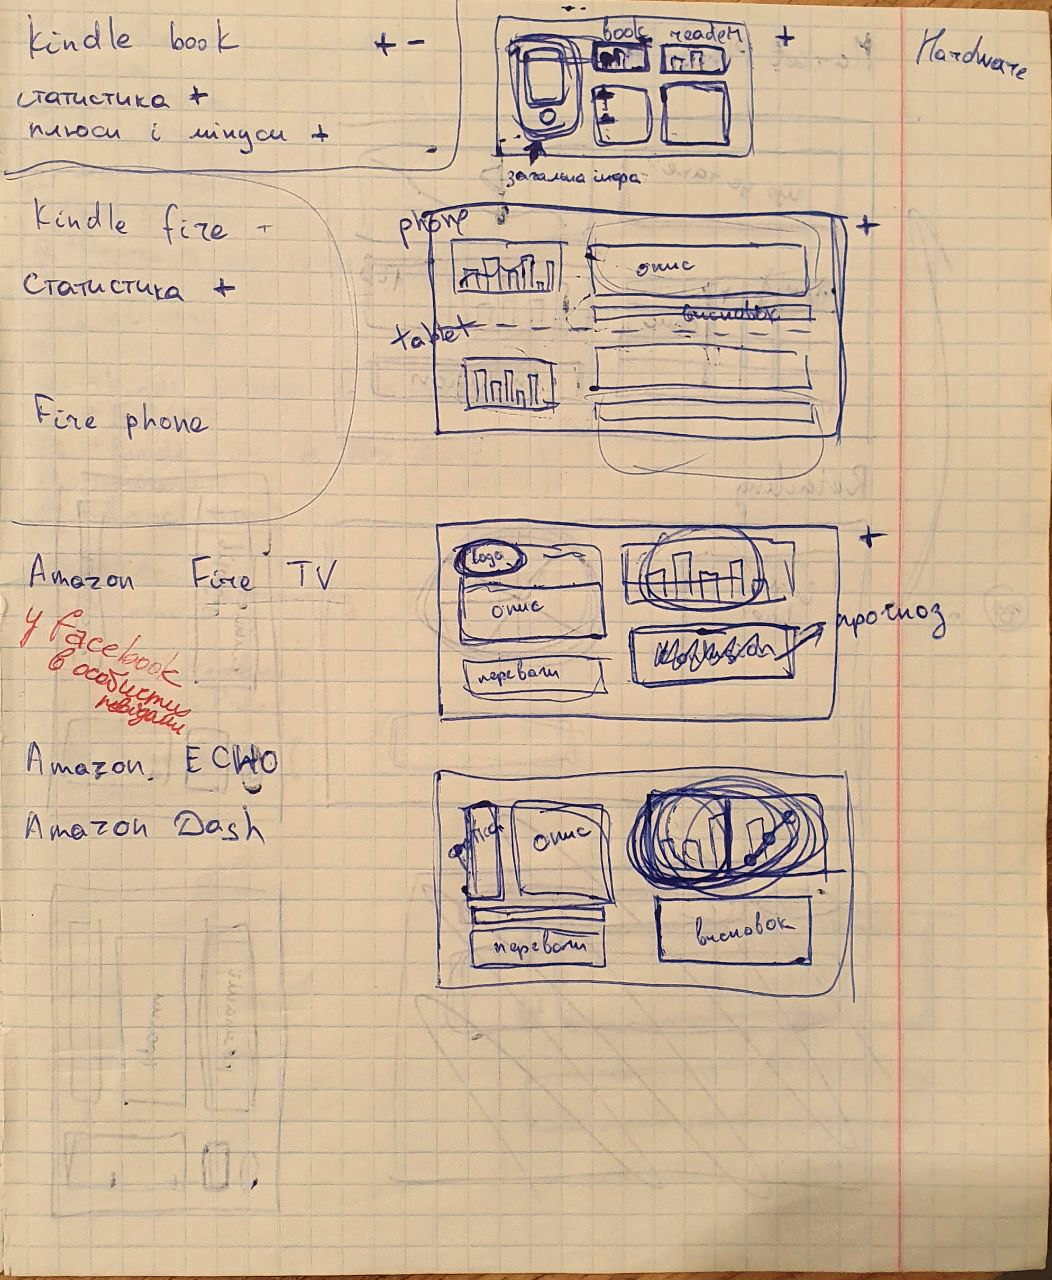 Kindle book + -
статистика +
плюси і мінуси +
book reader +
загальна інфа
Hardware
Kindle fire -
статистика +
Fire phone
phone +
опис
висновок
tablet
Amazon Fire TV
у facebook
в особисті
Amazon ECHO
Amazon Dash
+
опис
переваги
прогноз
опис
переваги
висновок